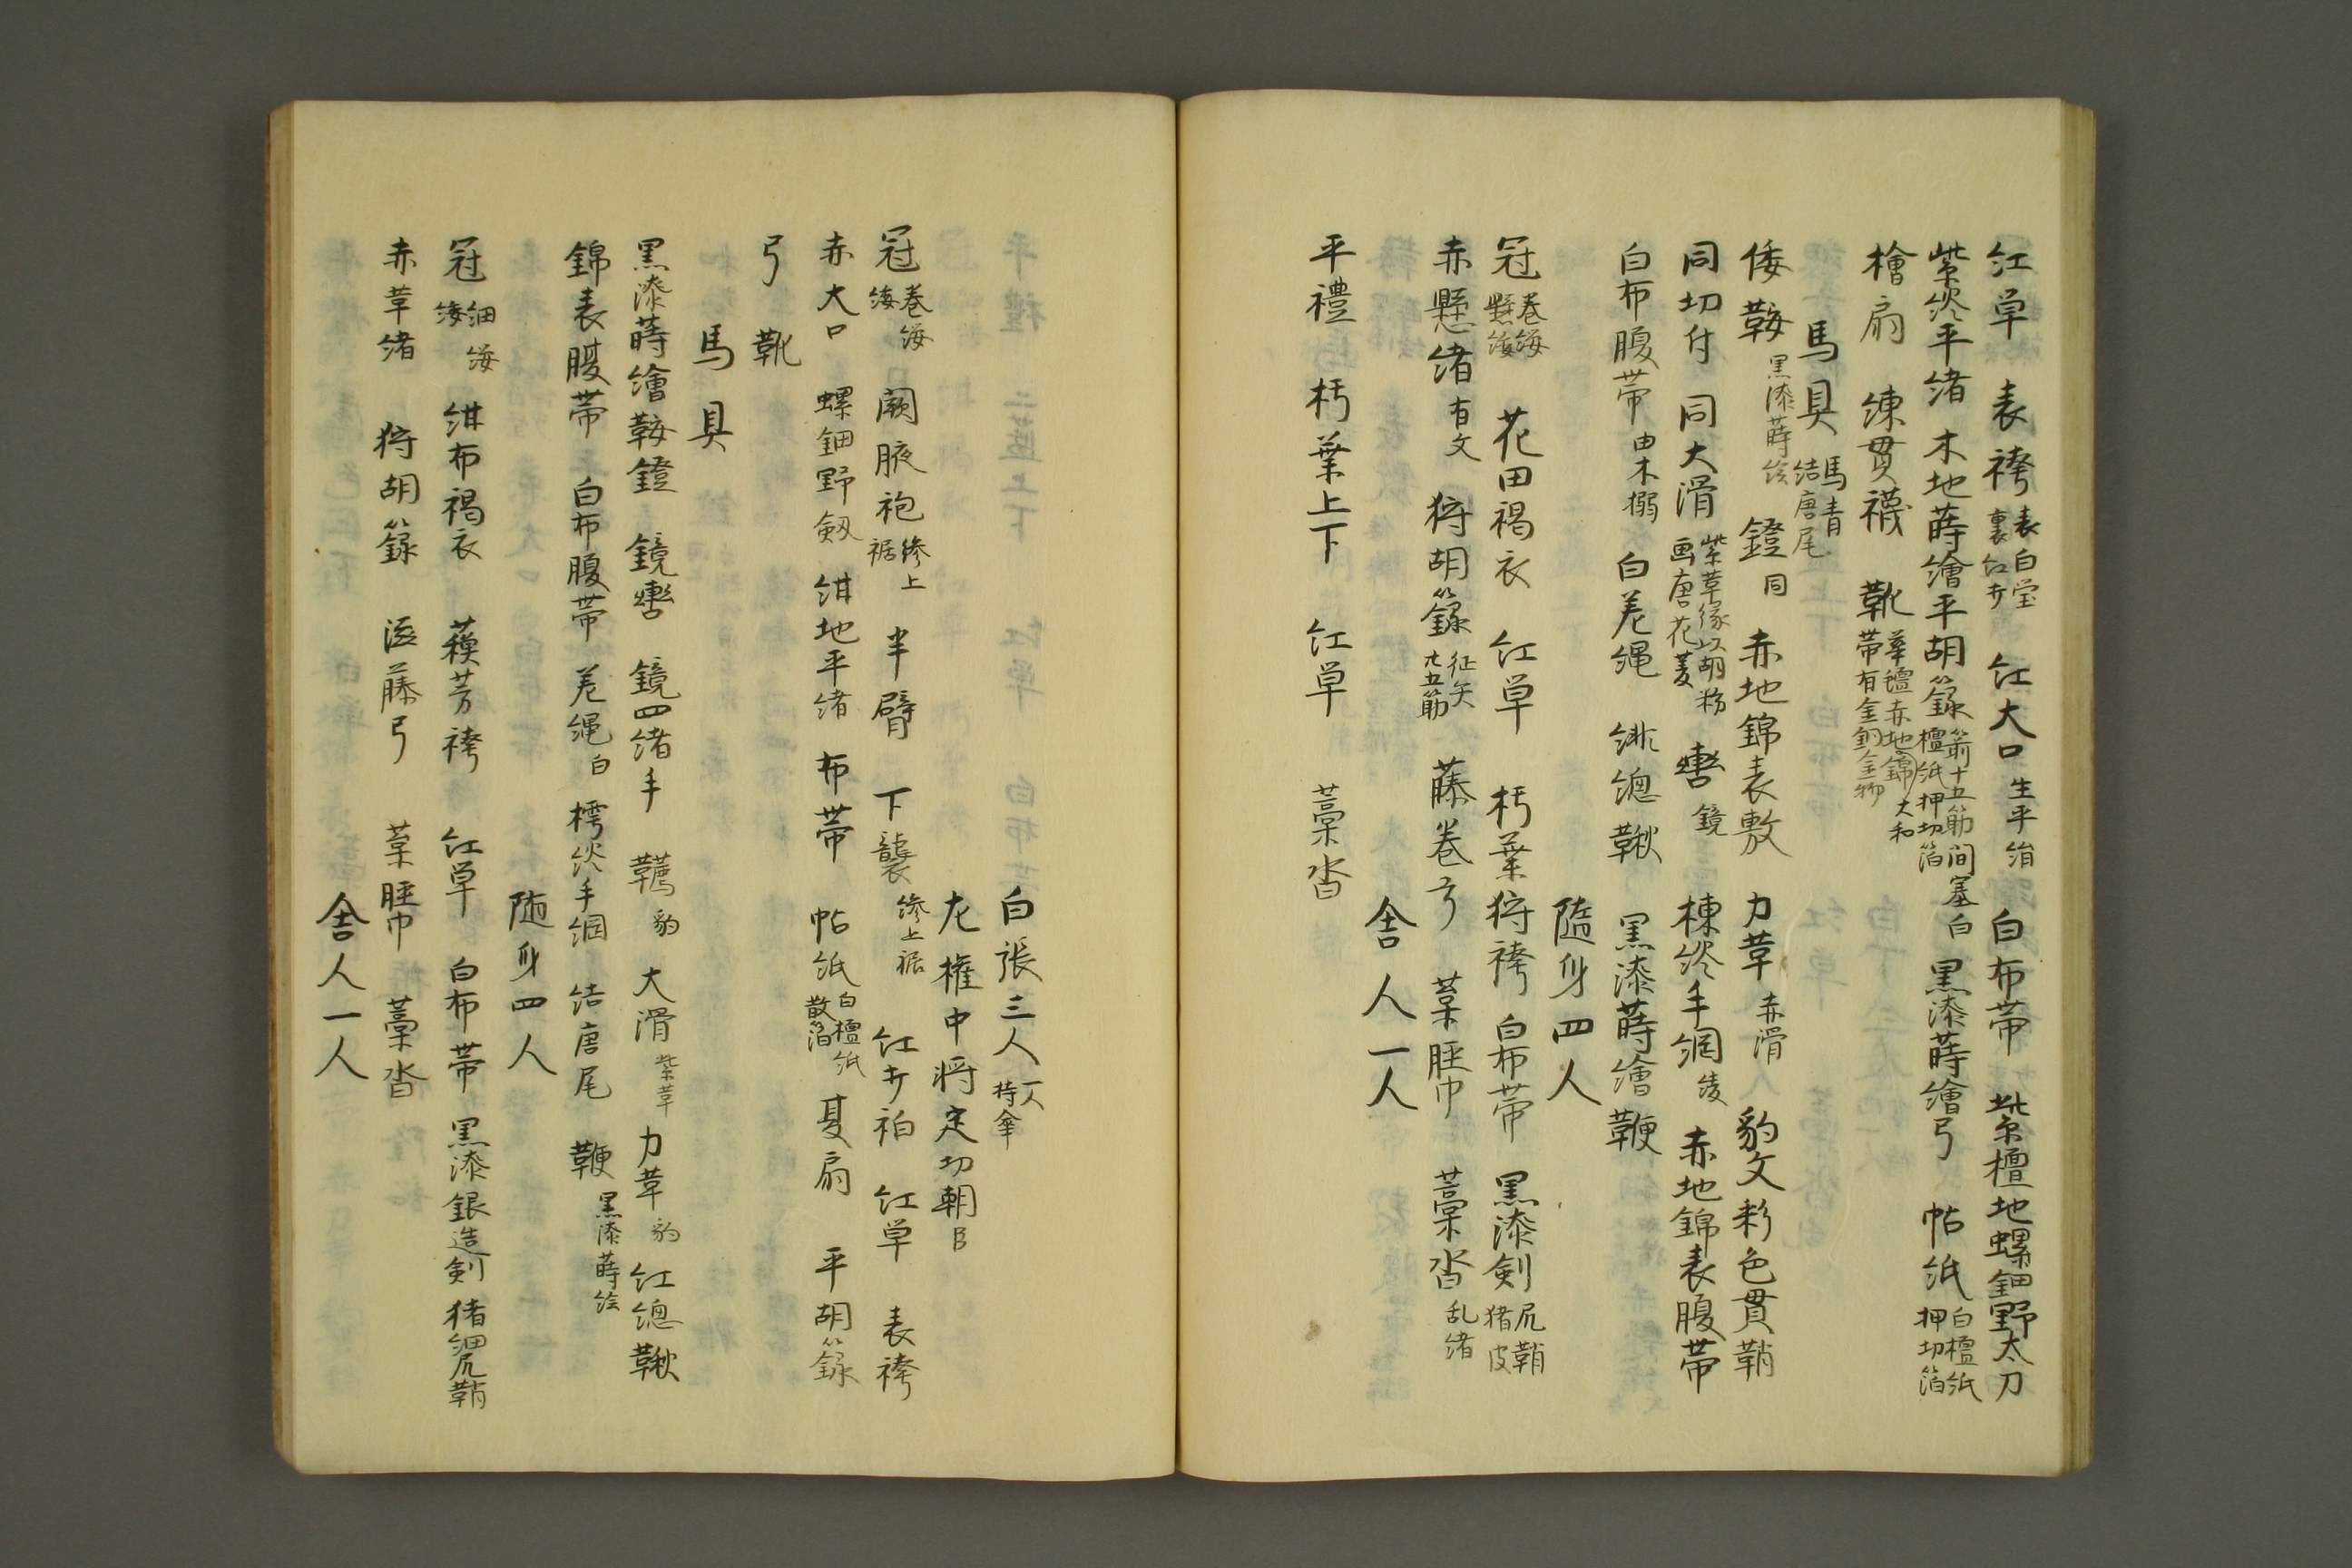 紅単 表袴 表白瑩 裏紅打 紅大口 生平絹 白布帯 紫檀地螺鈿野太刀
紫淡平緒 木地蒔繪平胡籙 箭十五筋間塞白 檀紙押切箔 黒漆蒔繪弓 帖紙 白檀紙 押切箔
檜扇 練貫襪 靴 華氊赤地錦大和 帯有金銅金物
馬具 馬青 結唐尾
倭鞍 黒漆蒔絵 鐙 同 赤地錦表敷 力革 赤滑 豹文彩色貫鞘
同切付 同大滑 紫革縁以胡粉 画唐花菱 轡 鏡 棟淡手綱 綾 赤地錦表腹帯
白布腹帯 由木搦 白差縄 緋總鞦 黒漆蒔繪鞭
隨身四人
冠 巻纓 懸緌 花田褐衣 紅単 朽葉狩袴 白布帯 黒漆剣 尻鞘 猪皮
赤懸緒 有文 狩胡籙 征矢 廿五筋 藤巻弓 葉脛巾 藁沓 乱緒
舎人一人
平禮 朽葉上下 紅単 藁沓
白張三人 一人 持傘
左権中将定切朝臣
冠 巻纓 緌 闕腋袍 縿上 裾 半臂 下襲 縿上裾 紅打衵 紅単 表袴
赤大口 螺鈿野剱 紺地平緒 布帯 帖紙 白檀紙 散箔 夏扇 平胡籙
弓 靴
馬具
黒漆蒔繪鞍鐙 鏡轡 鏡四緒手 韉 豹 大滑 紫革 力革 豹 紅總鞦
錦表腹帯 白布腹帯 差縄 白 樗淡手綱 結唐尾 鞭 黒漆蒔絵
隨身四人
冠 細纓 緌 紺布褐衣 蘓芳袴 紅単 白布帯 黒漆銀造剣 猪細尻鞘
赤革緒 狩胡籙 滋藤弓 葉脛巾 藁沓
舎人一人